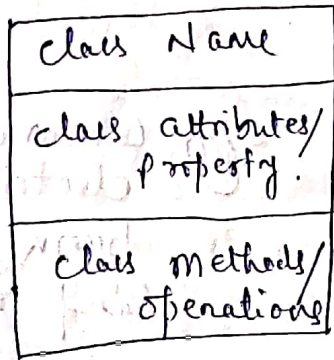 class Name
class attributes/
property.
class methods/
operations